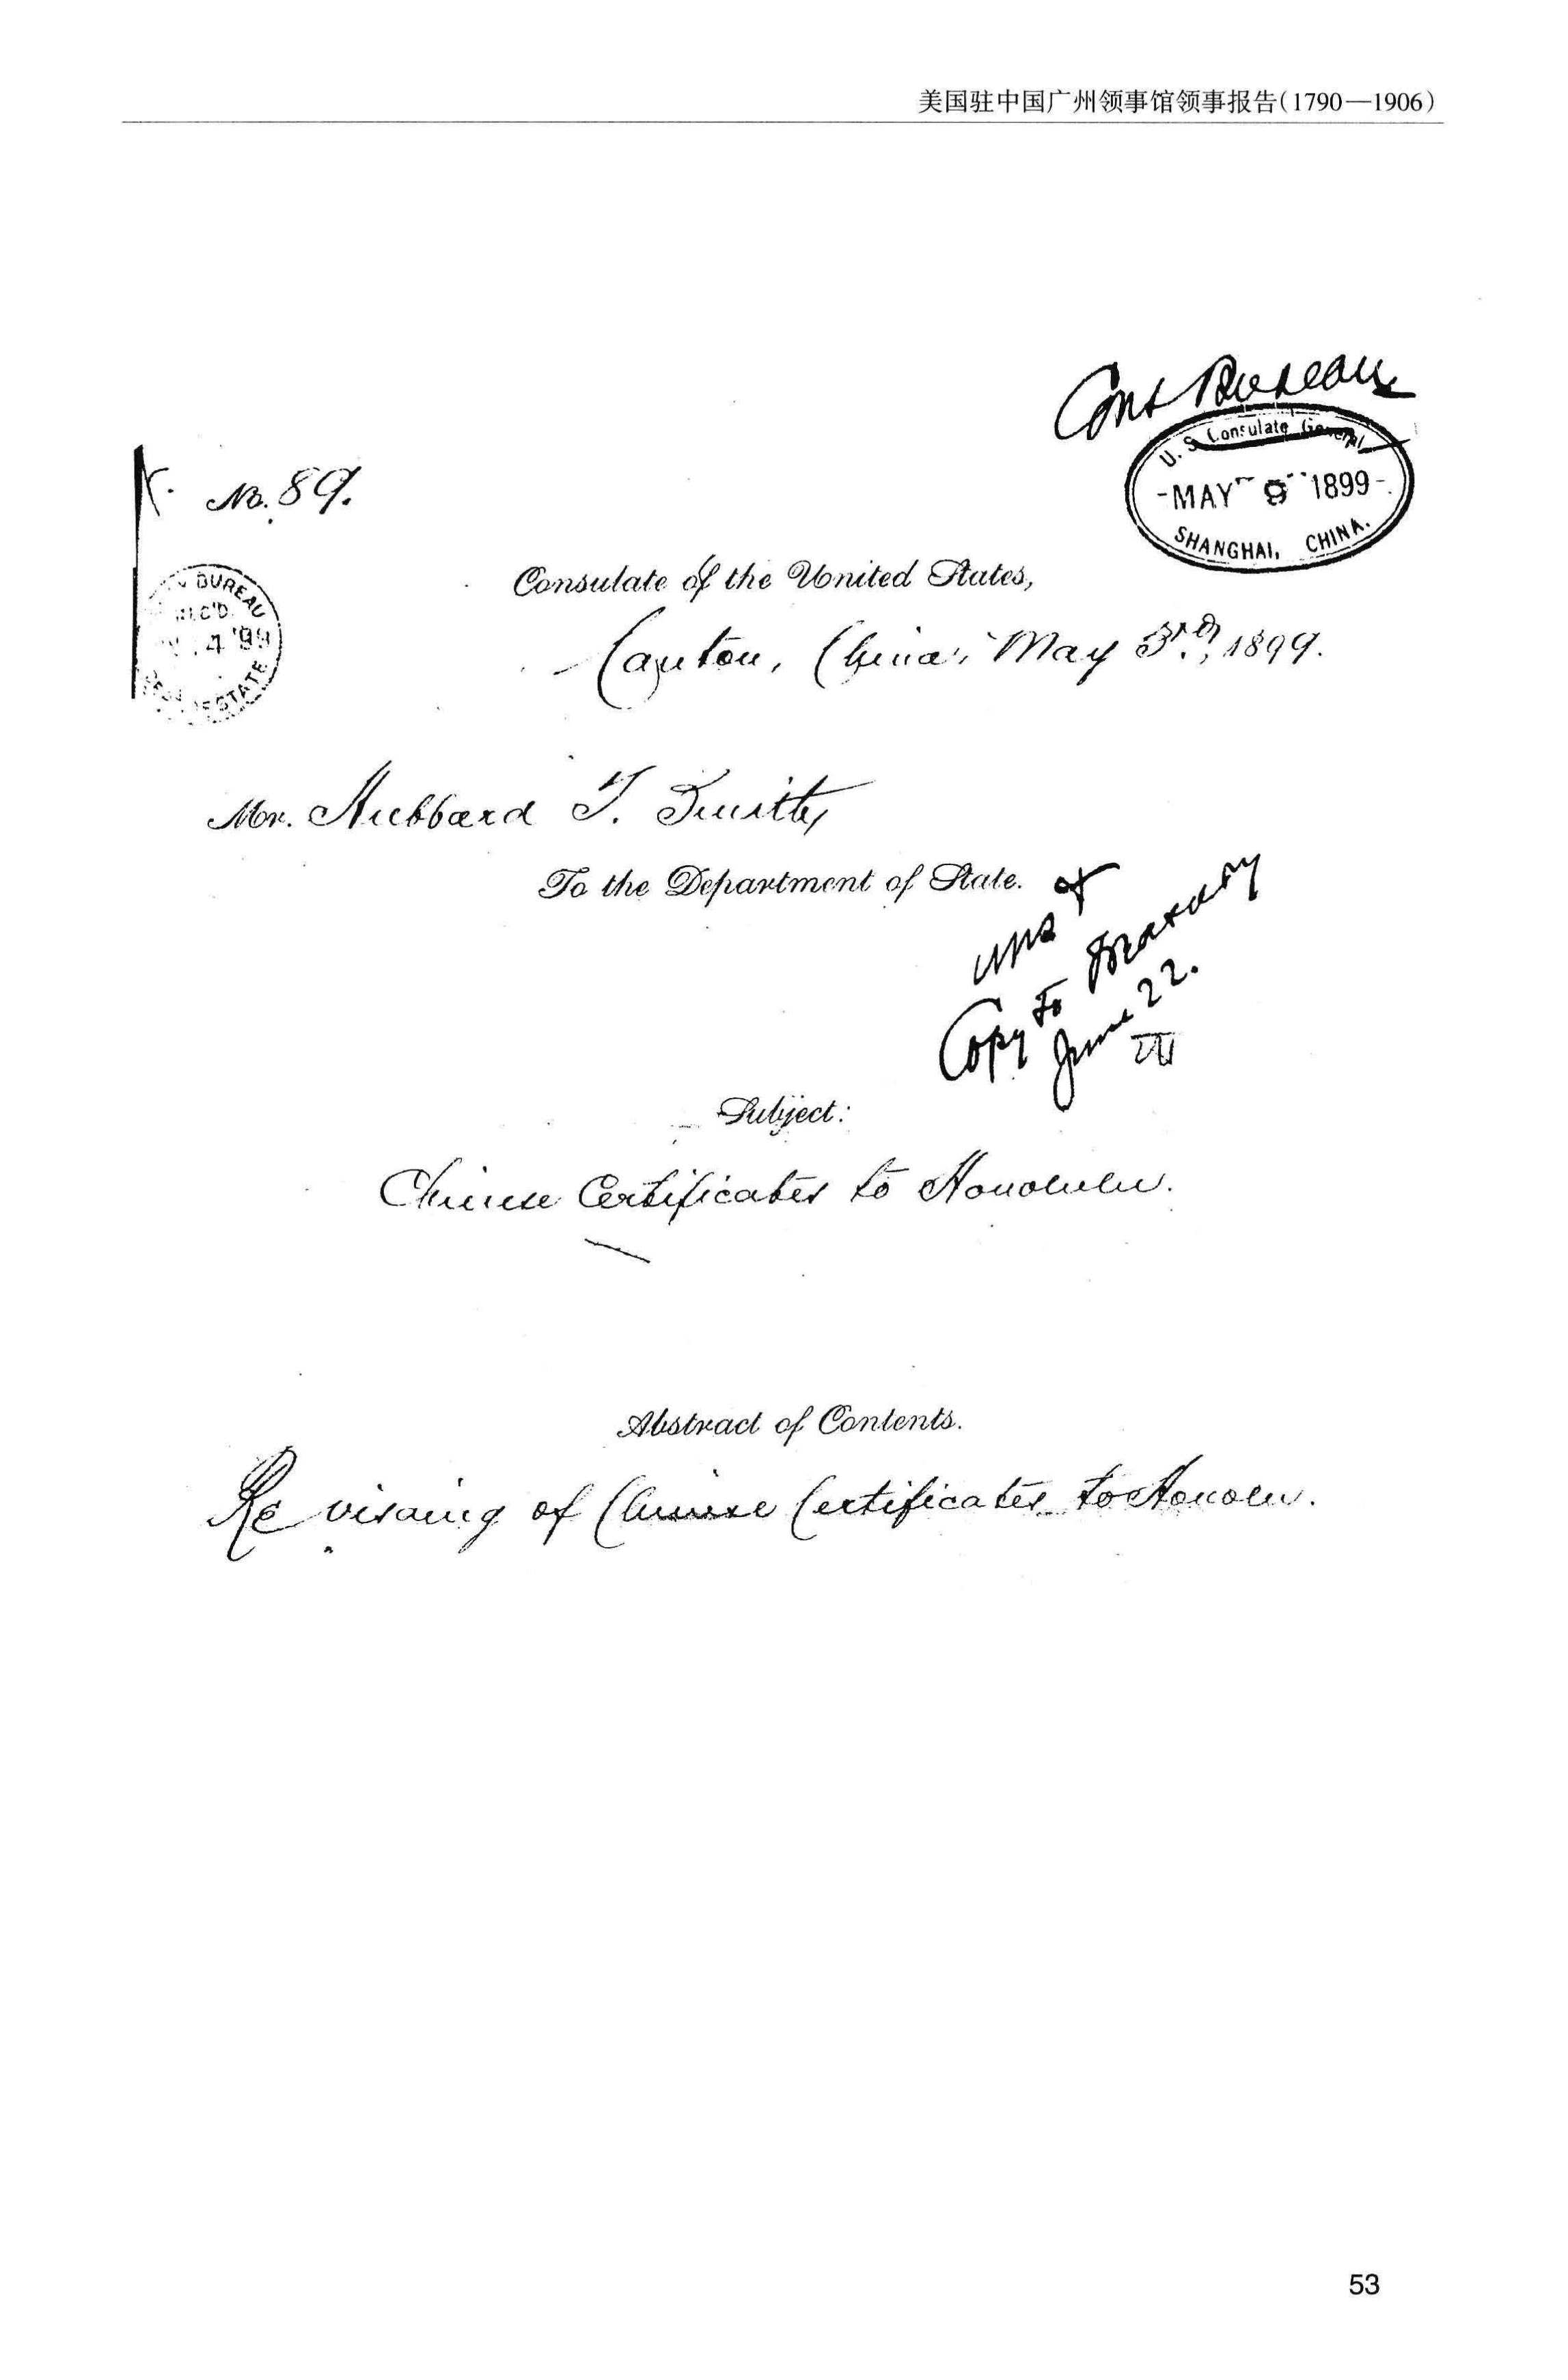 美国驻中国广州领事馆领事报告(1790—1906)
Cons Bureau
U. S. Consulate General
-MAY 9 1899-
SHANGHAI, CHINA.
No. 89.
BUREAU
REC'D.
4 '99
STATE
Consulate of the United States,
Canton, China, May 3rd, 1899.
Mr. Hubbard T. Smith,
To the Department of State.
Copy to Treasury
June 22.
Subject:
Chinese Certificates to Honolulu.
Abstract of Contents.
Re visaing of Chinese Certificates to Honolu.
53